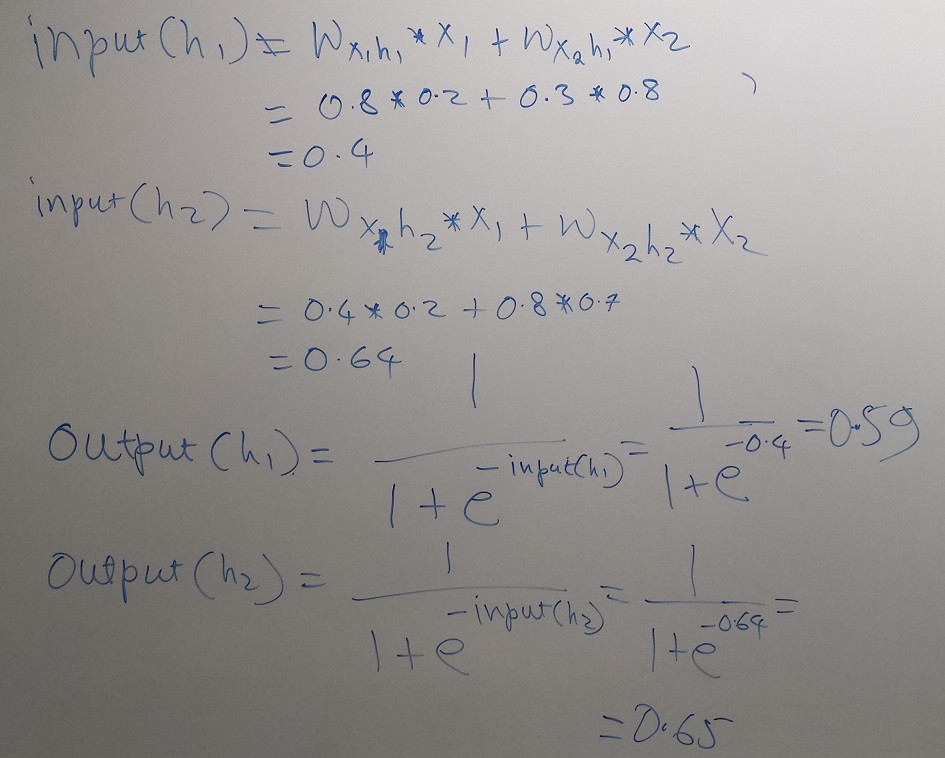 input(h₁) = W_x₁h₁ * x₁ + W_x₂h₁ * x₂
= 0.8 * 0.2 + 0.3 * 0.8
= 0.4
input(h₂) = W_x₁h₂ * x₁ + W_x₂h₂ * x₂
= 0.4 * 0.2 + 0.8 * 0.7
= 0.64
Output(h₁) = 1 / (1 + e^(-input(h₁))) = 1 / (1 + e^(-0.4)) = 0.59
Output(h₂) = 1 / (1 + e^(-input(h₂))) = 1 / (1 + e^(-0.64)) =
= 0.65